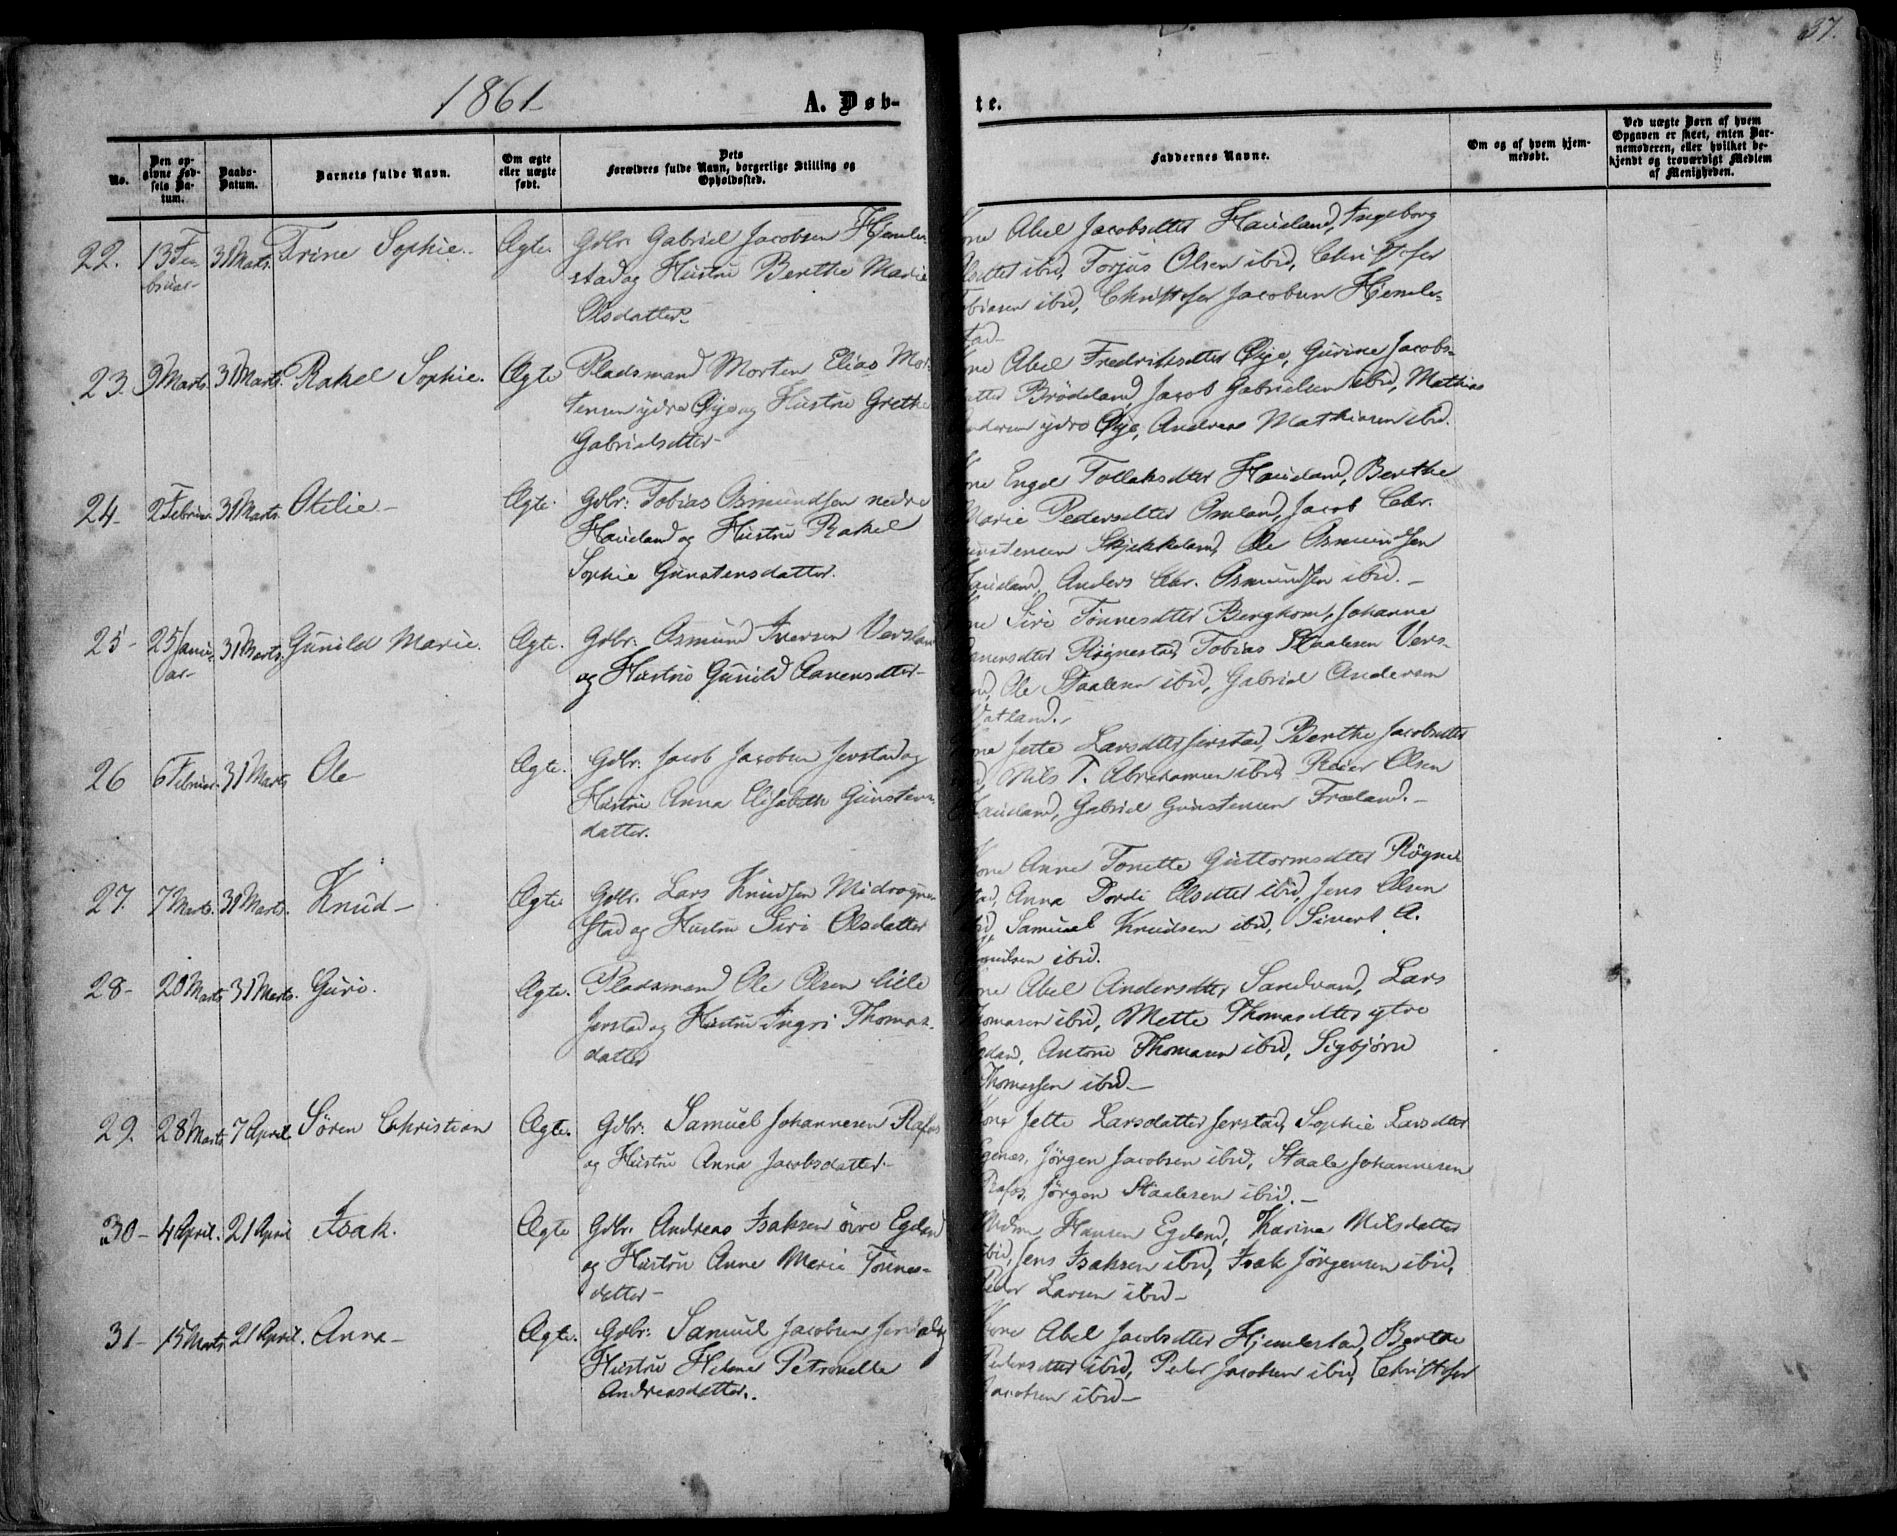 1861
A. Døb-
te.
37.
No.
Den op-
givne Fød-
sels Da-
tum.
Daabs-
Datum.
Barnets fulde Navn.
Om ægte
eller uægte
født.
Dets
Forældres fulde Navn, borgerlige Stilling og
Opholdssted.
Faddernes Navne.
Om og af hvem hjem-
medøbt.
Ved uægte Børn af hvem
Opgaven er skeet, enten Bar-
nemoderen, eller hvilket be-
kjendt og troværdigt Medlem
af Menigheden.
22. 13 Fe- 31 Marts. Trine Sophie. Ægte. Gdbr: Gabriel Jacobsen Hjemle-
bruar-
stad og Hustru Berthe Marie
Olsdatter-
Kone Abel Jacobsdtter Haueland, Ingeborg
Olsdtter ibid, Torjus Olsen ibid, Christofer
Tobiasen ibid, Christofer Jacobsen Hjemle-
stad-
23. 9 Marts. 31 Marts. Rakel Sophie. Ægte Pladsmand Morten Elias Mor-
tensen ydre Øye og Hustru Grethe
Gabrielsdtter-
Kone Abel Fredriksdtter Øye, Gurine Jacobs-
datter Brödeland, Jacob Gabrielsen ibid, Mathias
Andersen ydre Øye, Andreas Mathiasen ibid.
24- 2 Februar. 31 Marts Otelie- Ægte. Gdbr: Tobias Osmundsen nedre
Haueland og Hustru Rakel
Sophie Gunstensdatter.
Kone Engel Tollaksdtter Haueland, Berthe
Marie Pedersdtter Omland, Jacob Chr.
Gunstensen Skjekkeland, Ole Osmundsen
Haueland, Anders Chr. Osmundsen ibid.-
25- 25 Janu- 31 Marts. Gunild Marie. Ægte. Gdbr: Osmund Iversen Versland
ar-
og Hustru Gunild Aanensdtter-
Kone Siri Tönnesdtter Bergkom, Johanne
Aanensdtter Rögnestad, Tobias Staalesen Vers-
land, Ole Staalesen ibid, Gabriel Andersen
Vatland.-
26 6 Februar. 31 Marts Ole Ægte. Gdbr: Jacob Jacobsen Jerstad og
Hustru Anna Elisabeth Gunstens-
datter.
Kone Jette Larsdtter Jerstad, Berthe Jacobsdtter
ibid, Nils T. Abrahamsen ibid, Reier Olsen
Haueland, Gabriel Gunstensen Fræland.-
27. 7 Marts. 31 Marts. Knud- Ægte. Gdbr. Lars Knudsen Midrögne-
stad og Hustru Siri Olsdatter
Kone Anne Tonette Guttormsdtter Rögne-
stad, Anna Dordi Olsdtter ibid, Jens Olsen
ibid, Samuel Knudsen ibid, Sivert A.
Knudsen ibid.
28- 20 Marts 31 Marts. Guri. Ægte. Pladsmand Ole Olsen lille
Jerstad og Hustru Ingri Thomas-
datter
Kone Abel Andersdtter Sandvand, Lars
Thomasen ibid, Mette Thomasdtter ytre
Egdand, Antoni Thomasen ibid, Sigbjörn
Thomassen ibid-
29. 28 Marts 7 April. Sören Christian Ægte. Gdbr: Samuel Johannesen Rafos
og Hustru Anna Jacobsdatter-
Kone Jette Larsdatter Jerstad, Sophie Larsdtter
Egenes, Jörgen Jacobsen ibid, Staale Johannesen
Rafos, Jörgen Staalesen ibid.-
30- 4 April. 21 April Isak. Ægte Gdbr. Andreas Isaksen övre Egdand
og Hustru Anne Marie Tönnes-
datter-
Hansen Egdand, Karine Nilsdatter
ibid, Jens Isaksen ibid, Isak Jörgensen ibid,
Peder Larsen ibid-
31- 15 Marts 21 April. Anna- Ægte. Gdbr: Samuel Jacobsen Jerstad og
Hustru Helene Petronelle
Andreasdatter.
Kone Abel Jacobsdtter Hjemlestad, Berthe
Pedersdtter ibid, Peder Jacobsen ibid, Christofer
Jacobsen ibid-